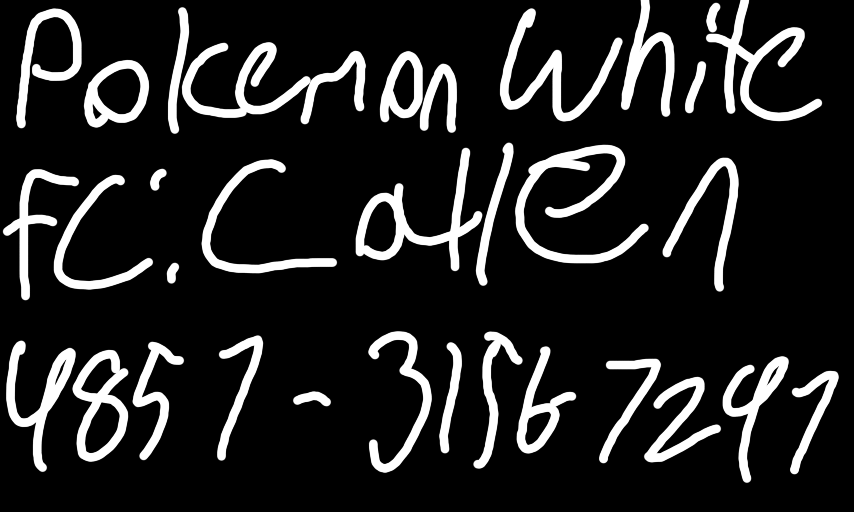 Pokemon White
FC: Catlen
4857-3156 7297